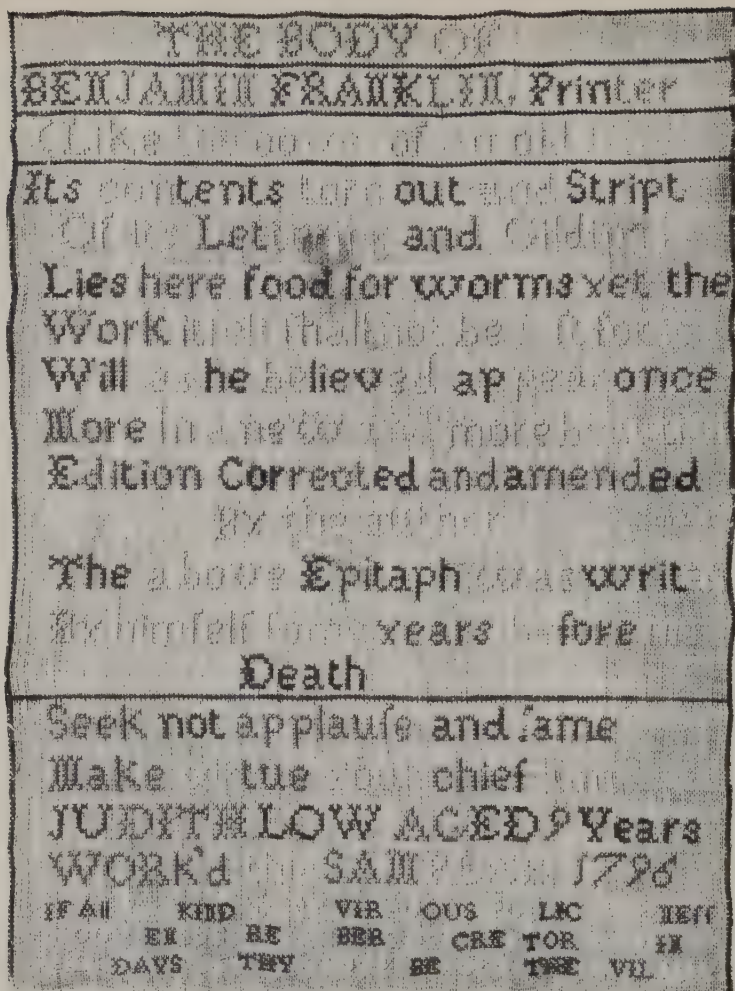 THE BODY OF
BENJAMIN FRANKLIN, Printer
(Like the cover of an old
Its contents torn out and Stript
Of its Lettering and Gilding
Lies here food for worms yet the
Work itself shall not be loſt for
Will as he believed appear once
More in a new and more
Edition Corrected and amended
By the author
The above Epitaph was writ
By himſelf years before
Death
Seek not applauſe and fame
Make virtue your chief
JUDITH LOW AGED 9 Years
WORK'd this SAM 1796
IF AN KIND VIR OUS LIC NEſſ
EN RE BER CRE TOR IN
DAYS THY BE THE VIL